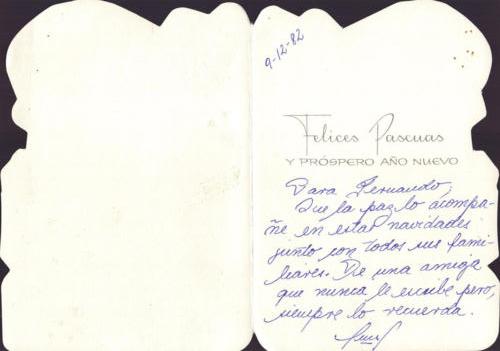 9-12-82
Felices Pascuas
Y PRÓSPERO AÑO NUEVO
Para Fernando,
Que la paz lo acompa-
ñe en estas navidades
junto con todos sus fami-
liares. De una amiga
que nunca le escribe pero,
siempre lo recuerda.